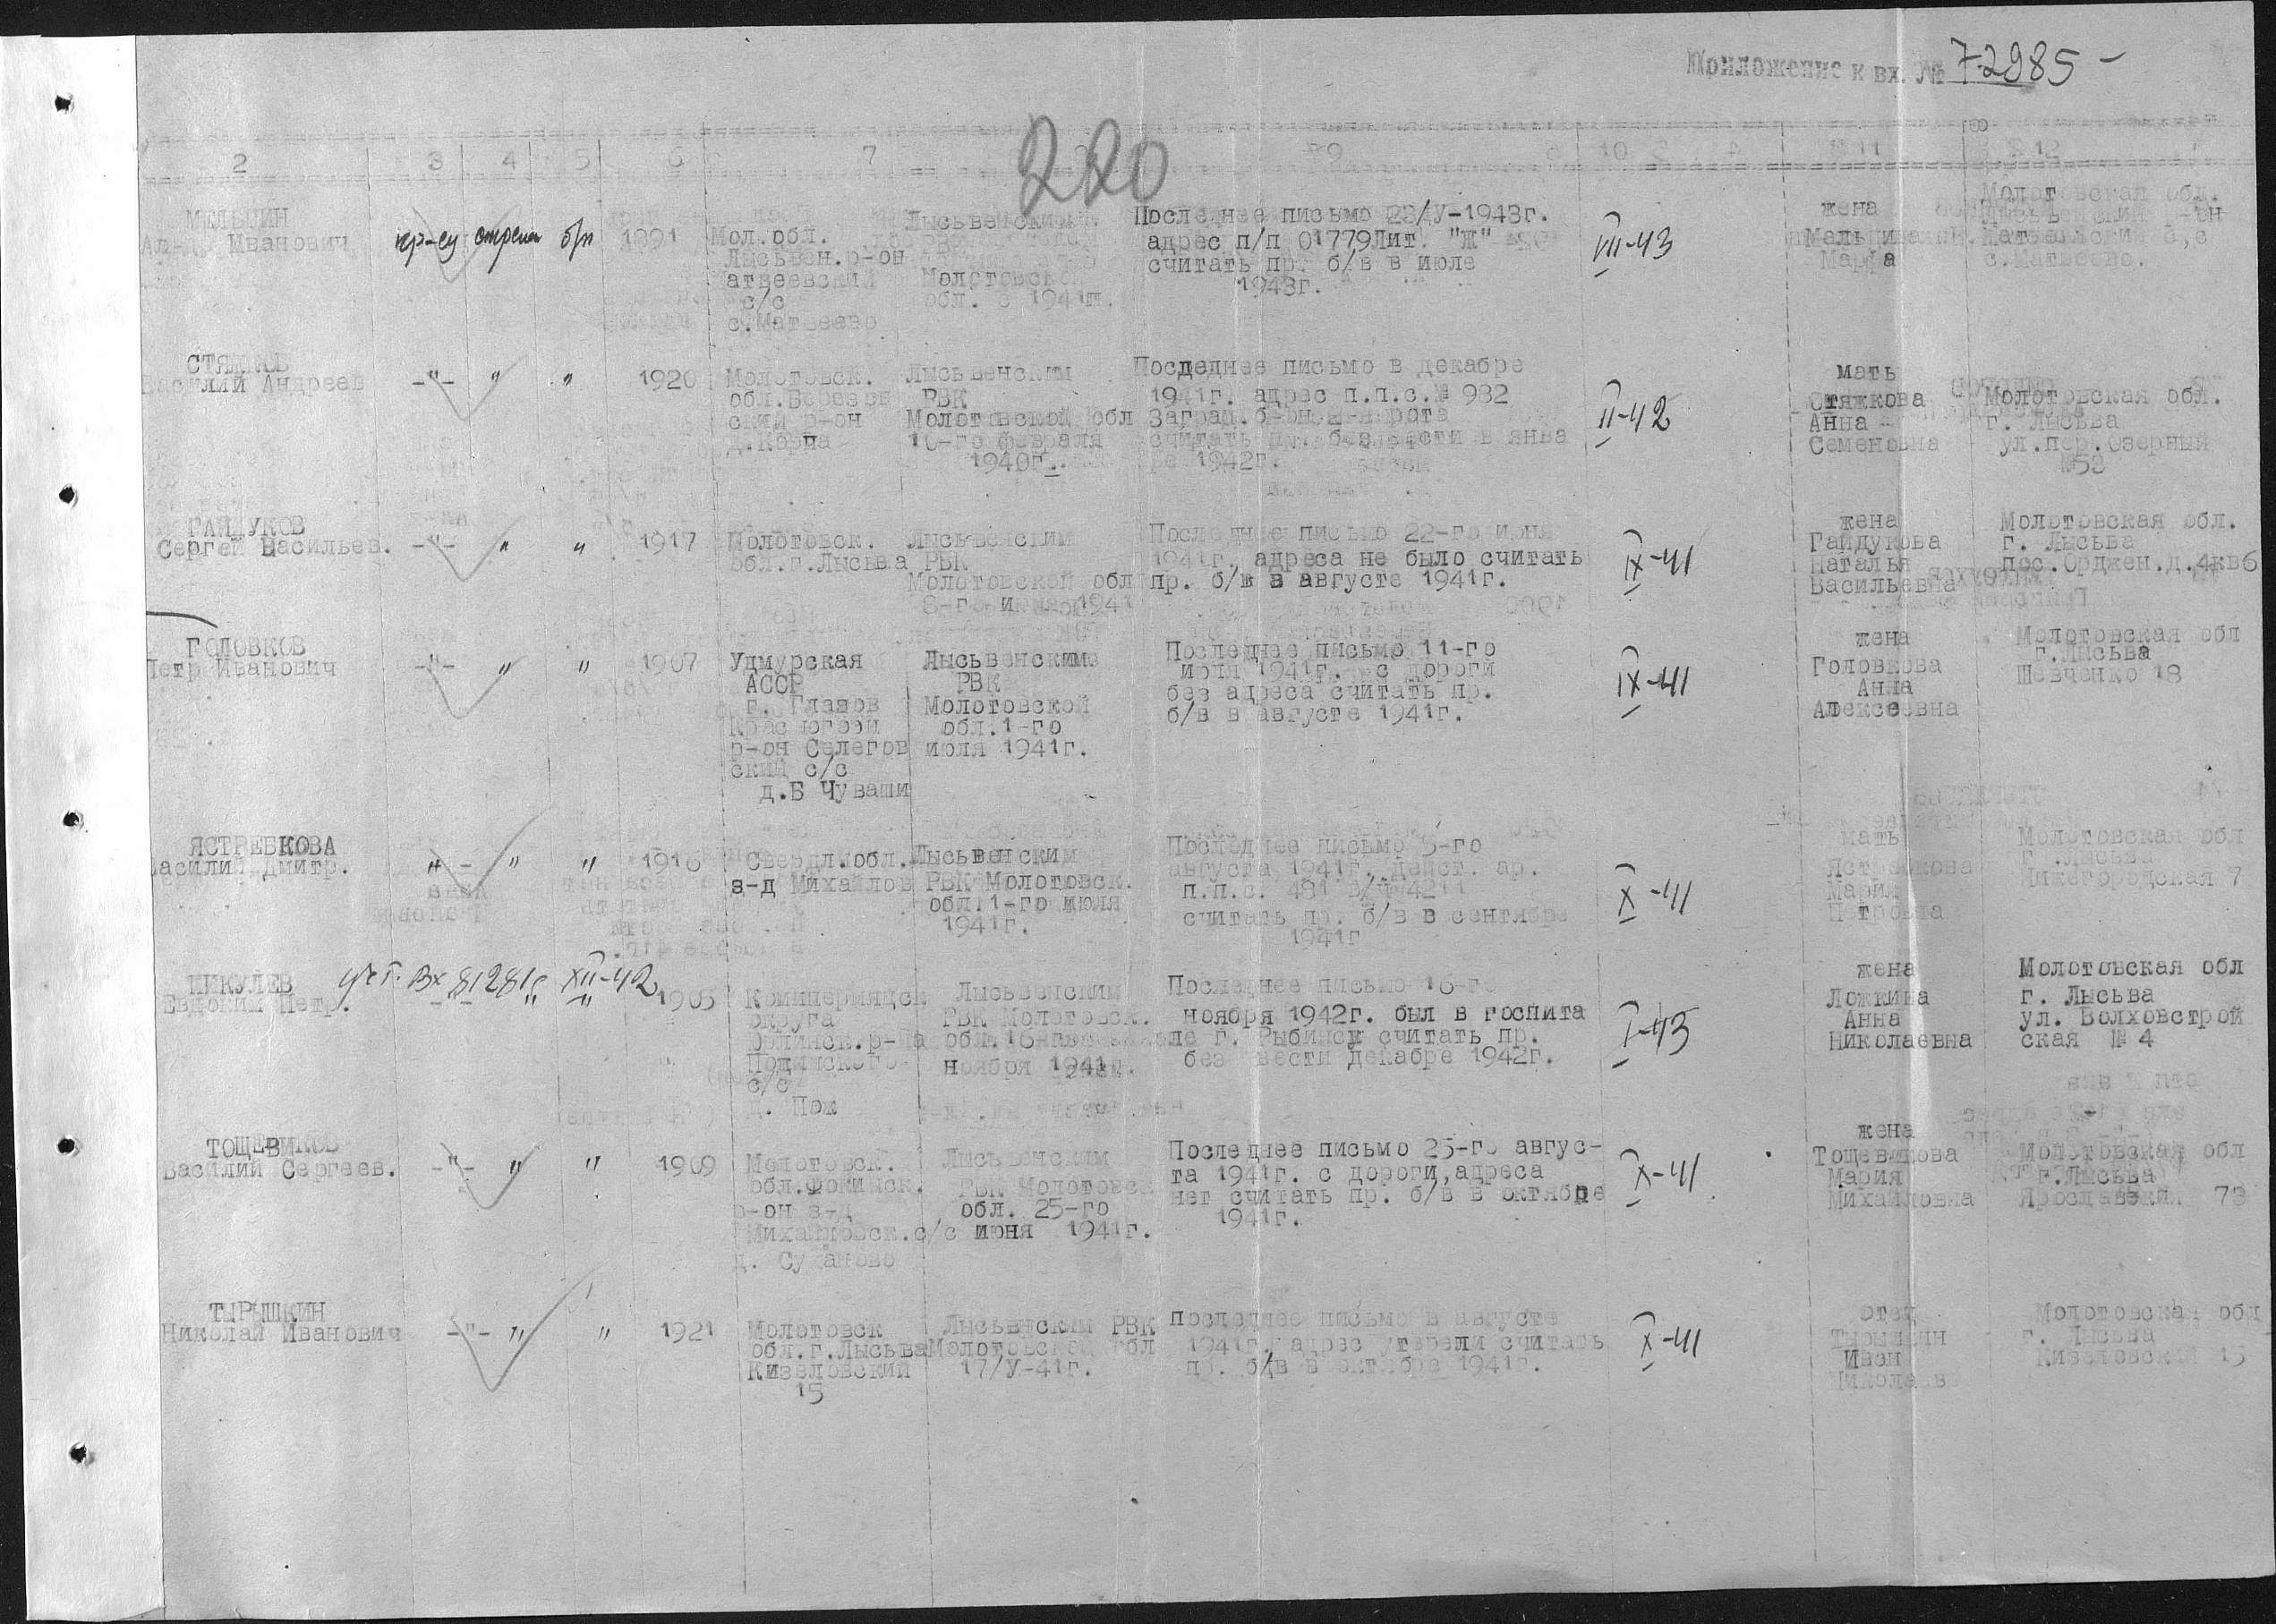 Приложение к вх. № 72985-
220
2 3 4 5 6 7 9 10 11 12
МЕЛЬКИН
Иванович
кр-ец стрелок б/п
1891
Мол.обл.
Лысьвен.р-он
Матвеевский
с/с
с.Матвеево
Лысьвенским
РВК
Молотовской
обл. в 1941г.
Последнее письмо 23/У-1943г.
адрес п/п 01779Лит. "Ж"
считать пр. б/в в июле
1943г.
VIII-43
жена
Марфа
Молотовская обл.
с.Матвеево.
Василий Андреев
-"- " "
1920
Молотовск.
ский р-он
Лысьвенским
РВК
Молотовской обл
10-го февраля
1940г.
Последнее письмо в декабре
1941г. адрес п.п.с.№ 982
Заград.б-он
считать пр. безвести в янва
ре 1942г.
II-42
мать
Стяжкова
Анна
Семеновна
Молотовская обл.
г. Лысьва
ул.пер.Озерный
№58
ГАЙДУКОВ
Сергей Васильев.
-"- " "
1917
Молотовск.
обл.г.Лысьва
Лысьвенским
РВК
Молотовской обл
1941
Последнее письмо 22-го июня
1941г. адреса не было считать
пр. б/в в августе 1941г.
IX-41
жена
Гайдукова
Наталья
Васильевна
Молотовская обл.
г. Лысьва
пос.Орджен.д.4кв6
ГОЛОВКОВ
Петр Иванович
-"- " "
1907
Удмурская
АССР
г. Глазов
р-он Селегов
ский с/с
д.Б Чуваши
Лысьвенским
РВК
Молотовской
обл.1-го
июля 1941г.
Последнее письмо 11-го
июля 1941г. с дороги
без адреса считать пр.
б/в в августе 1941г.
IX-41
жена
Головкова
Анна
Алексеевна
Молотовская обл
г.Лысьва
Шевченко 18
ЯСТРЕБКОВА
Василий Дмитр.
" - " "
1916
Свердл.обл.
з-д Михайлов
Лысьвенским
РВК Молотовск.
обл.1-го июля
1941г.
Последнее письмо 5-го
августа 1941г. Дейст. ар.
п.п.с. 481
считать пр. б/в в сентябре
1941г
X-41
мать
Ястребкова
Мария
Петровна
Молотовская обл
г.Лысьва
Нижегородская 7
ПИКУЛЕВ
Евдоким Петр.
учт. вх 81281с XII-42
1905
Комипермяцк
округа
Юрлинск.р-на
с/с
д. Пож
Лысьвенским
РВК Молотовск.
ноября 1941г.
Последнее письмо 16-го
ноября 1942г. был в госпита
ле г. Рыбинск считать пр.
без вести декабре 1942г.
I-43
жена
Ложкина
Анна
Николаевна
Молотовская обл
г. Лысьва
ул. Волховстрой
ская № 4
ТОЩЕВИКОВ
Василий Сергеев.
-"- " "
1909
Молотовск.
обл.Фокинск.
р-он з-д
Михайловск.с/с
Лысьвенским
РВК Молотовск
обл. 25-го
июня 1941г.
Последнее письмо 25-го авгус-
та 1941г. с дороги,адреса
нет считать пр. б/в в октябре
1941г.
X-41
жена
Тощевикова
Мария
Михайловна
Молотовская обл
г.Лысьва
ТЫРЫШКИН
Николай Иванович
-"- " "
1921
Молотовск
обл.г.Лысьва
Кизеловский
15
Лысьвенским РВК
Молотовской обл
17/У-41г.
Последнее письмо в августе
1941г. адрес утеряли считать
пр. б/в в октябре 1941г.
X-41
отец
Тырышкин
Иван
Молотовская обл
г. Лысьва
Кизеловский 15